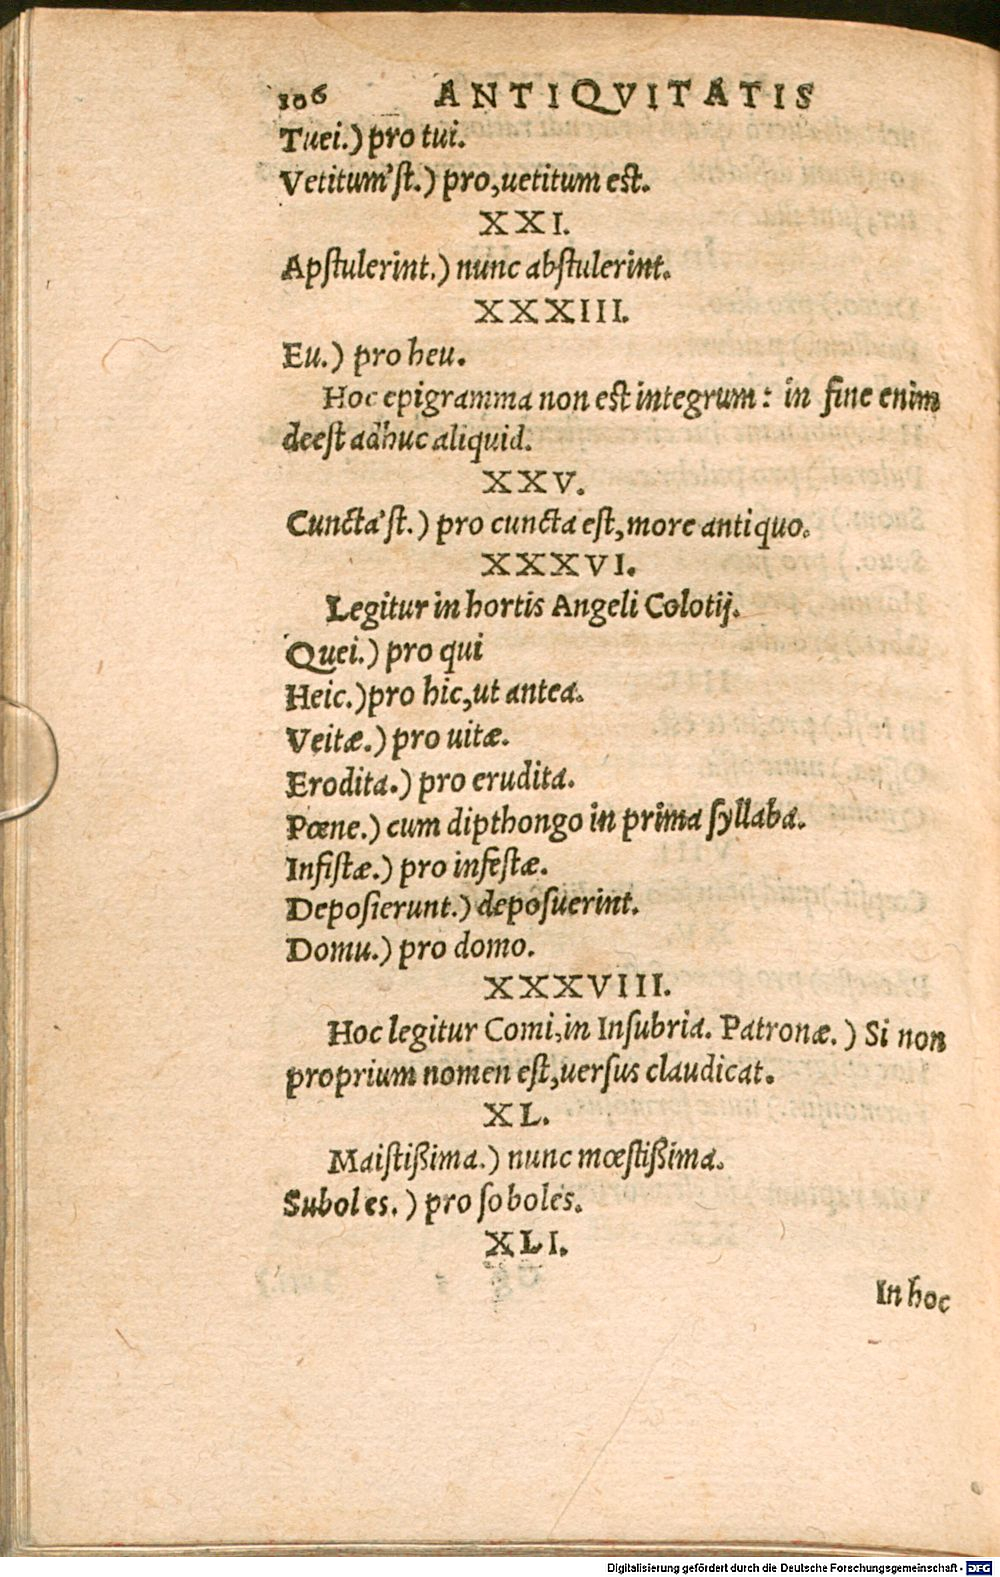 106 ANTIQVITATIS
Tuei.) pro tui.
Vetitum'st.) pro, uetitum est.
XXI.
Apstulerint.) nunc abstulerint.
XXXIII.
Eu.) pro heu.
Hoc epigramma non est integrum: in fine enim
deest adhuc aliquid.
XXV.
Cuncta'st.) pro cuncta est, more antiquo.
XXXVI.
Legitur in hortis Angeli Colotij.
Quei.) pro qui
Heic.) pro hic, ut antea.
Veitæ.) pro uitæ.
Erodita.) pro erudita.
Pœne.) cum dipthongo in prima syllaba.
Infistæ.) pro infestæ.
Deposierunt.) deposuerint.
Domu.) pro domo.
XXXVIII.
Hoc legitur Comi, in Insubria. Patronæ.) Si non
proprium nomen est, uersus claudicat.
XL.
Maistißima.) nunc mœstißima.
Suboles.) pro soboles.
XLI.
In hoc
Digitalisierung gefördert durch die Deutsche Forschungsgemeinschaft - DFG